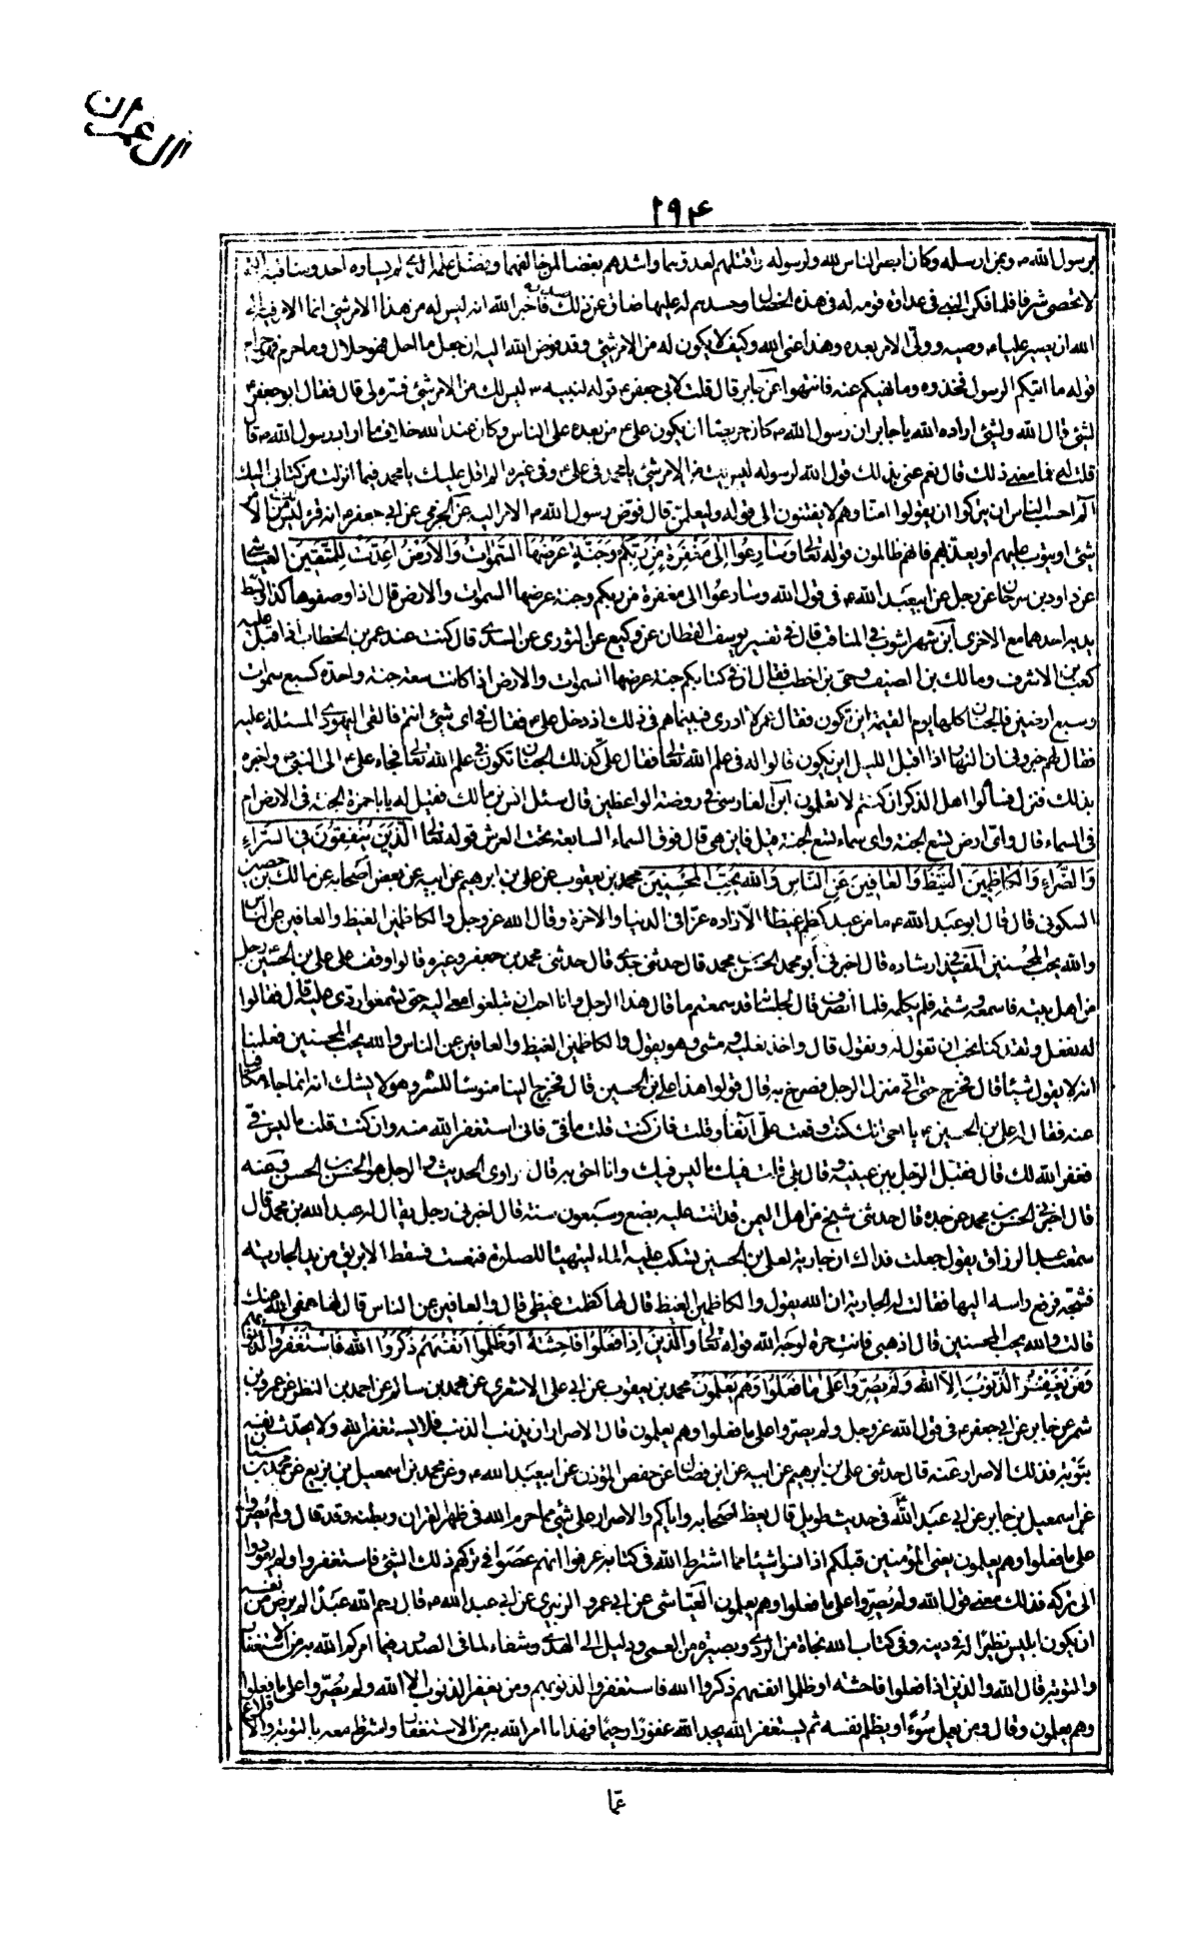 آل عمران
۱۹۴
برسول الله ص وبمن ارسله وكان انصر الناس لله ولرسوله واقتلهم لعدوهما واشدهم بغضا لمن خالفهما وفضل علمه الذى لم يساوه احد ومناقبه التى
لا تحصى شرفا فلما فكر النبى فى عداوة قومه له فى هذه الخصال وحسدهم له عليها ضاق عن ذلك فاخبر الله انه ليس له من هذا الامر شئ انما الامر فيه الى
الله ان يصير عليا ع وصيه وولى الامر بعده وهذا عنى الله وكيف لا يكون له من الامر شئ وقد فوض الله اليه ان جعل ما احل فهو حلال وما حرم فهو حرام
قوله ما اتيكم الرسول فخذوه وما نهيكم عنه فانتهوا عن جابر قال قلت لابى جعفر ع قوله لنبيه ص ليس لك من الامر شئ فسره لى قال فقال ابو جعفر ع
لشئ قال الله ولشئ اراده الله يا جابر ان رسول الله ص كان حريصا ان يكون على ع من بعده على الناس وكان عند الله خلاف ما اراد رسول الله ص قال
قلت له فما معنى ذلك قال نعم عنى بذلك قول الله لرسوله ليس لك من الامر شئ يا محمد فى على ع وفى غيره الم اقل عليك يا محمد فيما انزلت من كتابى اليك
الم احسب الناس ان يتركوا ان يقولوا امنا وهم لا يفتنون الى قوله وليعلمن قال فوض رسول الله ص الامر اليه عن الجرمى عن ابى جعفر ع انه قرء ليس لك من الامر
شئ او يتوب عليهم او يعذبهم فانهم ظالمون قوله تعالى وسارعوا الى مغفرة من ربكم وجنة عرضها السموات والارض اعدت للمتقين العياشى
عن داود بن سرحان عن رجل عن ابيعبد الله ع فى قول الله وسارعوا الى مغفرة من ربكم وجنة عرضها السموات والارض قال اذا وصفوها كذا وبسط
يديه احدهما مع الاخرى ابن شهراشوب فى المناقب قال فى تفسير يوسف القطان عن وكيع عن الثورى عن السدى قال كنت عند عمر بن الخطاب اذ اقبل عليه
كعب بن الاشرف ومالك بن الصيف وحى بن اخطب فقال ان فى كتابكم جنة عرضها السموات والارض اذا كانت سعة جنة واحدة كسبع سموات
وسبع ارضين فالجنان كلها يوم القيمة اين تكون فقال عمر لا ادرى فبينما هم فى ذلك اذ دخل على ع فقال فى اى شئ انتم فالقى اليهودى المسئلة عليه
فقال لهم خبرونى ان النهار اذا اقبل الليل اين يكون قالوا له فى علم الله تعالى فقال على كذلك الجنان تكون فى علم الله تعالى فجاء على ع الى النبى ص واخبره
بذلك فنزل فسألوا اهل الذكر ان كنتم لا تعلمون ابن الفارسى فى روضة الواعظين قال سئل انس بن مالك فقيل له يا ابا حمزة الجنة فى الارض ام
فى السماء قال واى ارض تسع الجنة واى سماء تسع الجنة قيل فاين هى قال فوق السماء السابعة تحت العرش قوله تعالى الذين ينفقون فى السراء
والضراء والكاظمين الغيظ والعافين عن الناس والله يحب المحسنين محمد بن يعقوب عن على بن ابرهيم عن ابيه عن بعض اصحابه عن مالك بن حصين
السكونى قال قال ابو عبد الله ع ما من عبد كظم غيظا الا زاده عزا فى الدنيا والاخرة وقال الله عز وجل والكاظمين الغيظ والعافين عن الناس
والله يحب المحسنين المفيد فى ارشاده قال اخبرنى ابو محمد الحسن بن محمد قال حدثنى جدى قال حدثنى محمد بن جعفر وغيره قالوا وقف على على بن الحسين ع رجل
من اهل بيته فاسمعه وشتمه فلم يكلمه فلما انصرف قال لجلسائه قد سمعتم ما قال هذا الرجل وانا احب ان تبلغوا معى اليه حتى تسمعوا ردى عليه قال فقالوا
له نفعل ولقد كنا نحب ان تقول له ونقول قال واخذ نعليه ومشى وهو يقول والكاظمين الغيظ والعافين عن الناس والله يحب المحسنين فعلمنا
انه لا يقول شيئا قال فخرج حتى اتى منزل الرجل فصرخ به قال قولوا هذا على بن الحسين قال فخرج الينا متوثبا للشر وهو لا يشك انه انما جاء مكافيا
عنه فقال له على بن الحسين ع يا اخى انك كنت وقفت على آنفا وقلت فان كنت قلت ما فى فانى استغفر الله منه وان كنت قلت ما ليس فى
فغفر الله لك قال فقبل الرجل بين عينيه وقال بلى قلت فيك ما ليس فيك وانا احق به قال راوى الحديث والرجل هو الحسن بن الحسن وعنه
قال اخبرنى الحسن بن محمد عن جده قال حدثنى شيخ من اهل اليمن قد اتت عليه بضع وسبعون سنة قال اخبرنى رجل يقال له عبد الله بن محمد قال
سمعت عبد الرزاق يقول جعلت جارية لعلى بن الحسين تسكب عليه الماء ليتهيأ للصلوة فنعست فسقط الابريق من يد الجارية
فشجه فرفع راسه اليها فقالت له الجارية ان الله يقول والكاظمين الغيظ قال لها كظمت غيظى قال والعافين عن الناس قال لها عفى الله عنك
قالت والله يحب المحسنين قال اذهبى فانت حرة لوجه الله قوله تعالى والذين اذا فعلوا فاحشة او ظلموا انفسهم ذكروا الله فاستغفروا لذنوبهم
ومن يغفر الذنوب الا الله ولم يصروا على ما فعلوا وهم يعلمون محمد بن يعقوب عن ابى على الاشعرى عن محمد بن سالم عن احمد بن النظر عن عمرو بن
شمر عن جابر عن ابى جعفر ع فى قول الله عز وجل ولم يصروا على ما فعلوا وهم يعلمون قال الاصرار ان يذنب الذنب فلا يستغفر الله ولا يحدث نفسه
بتوبة فذلك الاصرار عنه قال حدثنى على بن ابرهيم عن ابيه عن ابن فضال عن حفص المؤذن عن ابيعبد الله ع وعن محمد بن اسمعيل بن بزيع عن محمد بن سنان
عن اسمعيل بن جابر عن ابى عبد الله ع فى حديث طويل قال يعظ اصحابه واياكم والاصرار على شئ مما حرم الله فى ظهر القران وبطنه وقد قال ولم يصروا
على ما فعلوا وهم يعلمون يعنى المؤمنين قبلكم اذا نسوا شيئا مما اشترط الله فى كتابه عرفوا انهم عصوا فى تركهم ذلك الشئ فاستغفروا ولم يعودوا
الى تركه فذلك معنى قول الله ولم يصروا على ما فعلوا وهم يعلمون العياشى عن ابى عمرو الزبيرى عن ابى عبد الله ع قال رحم الله عبدا لم يرض من نفسه
ان يكون ابليس نظيرا له فى دينه وفى كتاب الله نجاة من الردى وبصيرة من العمى ودليل الى الهدى وشفاء لما فى الصدور فيما امركم الله به من الاستغفار
والتوبة قال الله والذين اذا فعلوا فاحشة او ظلموا انفسهم ذكروا الله فاستغفروا لذنوبهم ومن يغفر الذنوب الا الله ولم يصروا على ما فعلوا
وهم يعلمون وقال ومن يعمل سوءا او يظلم نفسه ثم يستغفر الله يجد الله غفورا رحيما فهذا ما امر الله به من الاستغفار واشترط معه بالتوبة والاقلاع
عما